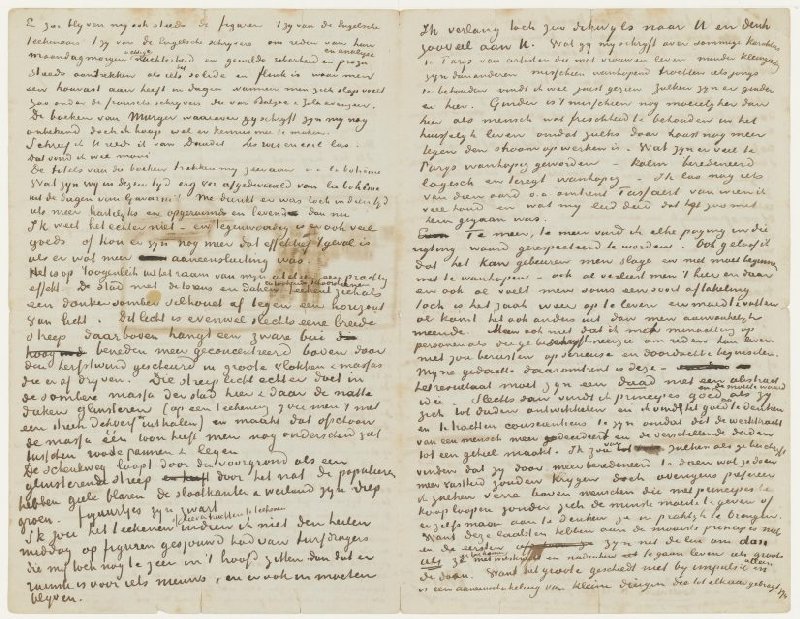 Zoo blyven my ook steeds de figuren zyn van de Engelsche
teekenaars zyn van de Engelsche schryvers om reden van hun
maandagmorgen achtige nuchterheid en gewilde soberheid en proza en analyse
steeds aantrekken als iets solide en flinks waar men
een houvast aan heeft in dagen wanneer men zich slap voelt
zoo onder de fransche schryvers die van Balzac & Zola evenzeer.
De boeken van Murger waarover gy schryft zyn my nog
onbekend doch ik hoop wel er kennis mee te maken.
Schreef ik U reeds ik van Daudet les rois en exil las.
dat vond ik wel mooi
De titels van die boeken trekken my zeer aan o.a. la bohème
Wat zyn wy in dezen tyd erg ver afgedwaald van la bohème
uit de dagen van Gavarni! Me dunkt er was toch in dien tyd
iets meer hartelyks en opgeruimds en levends dan nu
Ik weet het echter niet – en tegenwoordig is er ook veel
goeds of kon er zyn nog meer dat effectief 't geval is
als er wat meer aaneensluiting was.
Net is op 't oogenblik uit het raam van myn atelier een prachtig
effekt. De stad met de torens en daken & rookende schoorsteenen teekent zich als
een donker somber silhouet af tegen een horizont
van licht. Dit licht is evenwel slechts eene breede
streep daarboven hangt een zware bui
beneden meer geconcentreerd boven door
den herfstwind gescheurd in groote vlokken & massas
die er af dryven. Die streep licht echter doet in
de sombere massa der stad hier & daar de natte
daken glinsteren (op een teekening zou men 't met
een streek dekverf uithalen) en maakt dat ofschoon
de massa één toon heeft men nog onderscheid ziet
tusschen roode pannen & leyen.
De Schenkweg loopt door de voorgrond als een
glinsterende streep door het nat de populieren
hebben geele blaren de slootkanten & weiland zyn diep
groen. Figuurtjes zyn zwart
Ik zou het teekenen of liever trachten te teekenen indien ik niet den heelen
middag op figuren gesjouwd had van turfdragers
die my toch nog te zeer in 't hoofd zitten dan dat er
ruimte is voor iets nieuws, en er ook in moeten
blyven.
Ik verlang toch zoo dikwyls naar U en denk
zooveel aan U. Wat gy my schryft over sommige karakters
te Parys van artisten die met vrouwen leven minder kleingeestig
zyn dan anderen misschien wanhopend trachten iets jongs
te behouden vind ik wel juist gezien Zulken zyn er ginder
en hier. Ginder is 't misschien nog moeielyker dan
hier als mensch wat frischheid te behouden in het
huisselyk leven omdat zulks daar haast nog meer
tegen den stroom op werken is – Wat zyn er veel te
Parys wanhopig geworden – kalm beredeneerd
logisch en teregt wanhopig – Ik las nog iets
van dien aard o.a. omtrent Tassaert van wien ik
veel houd en wat my leed deed dat het zoo met
hem gegaan was.
Te meer, te meer vind ik elke poging in die
rigting waard gerespecteerd te worden. Ook geloof ik
dat het kan gebeuren men slage en niet moet beginnen
met te wanhopen – ook al verliest men 't hier en daar
en ook al voelt men soms een soort aftakeling
toch is het zaak weer op te leven en moed te vatten
al komt het ook anders uit dan men aanvankelyk
meende. Meen ook niet dat ik met minachting op
personen als die ge beschryft neerzie om reden hun leven
niet zou berusten op serieuse en doordachte beginselen.
Myne gedachte daaromtrent is deze –
het resultaat moet zyn een daad niet een abstrakt
idee. Slechts dan vind ik principes goed en de moeite waard als zy
zich tot daden ontwikkelen en ik vind het goed te denken
en te trachten consciencieus te zyn omdat dit de werkkracht
van een mensch meer gedecideerd en de verschillende daden
tot een geheel maakt. Ik zou zulken als ge beschryft
vinden dat zy door meer beredeneerd te doen wat ze doen
meer vastheid zouden krygen doch overigens prefereer
ik zulken verre boven menschen die met principes te
koop loopen zonder zich de minste moeite te geven of
er zelfs maar aan te denken ze in praktyk te brengen.
Want deze laatsten hebben aan de mooiste principes niets
en de eersten zyn net de lui om als
ze met wilskracht en nadenken te gaan leven iets groots
te doen. Want het groote geschiedt niet by impulsie alleen en
is een aaneenschakeling van kleine dingen die tot elkaar gebragt zyn